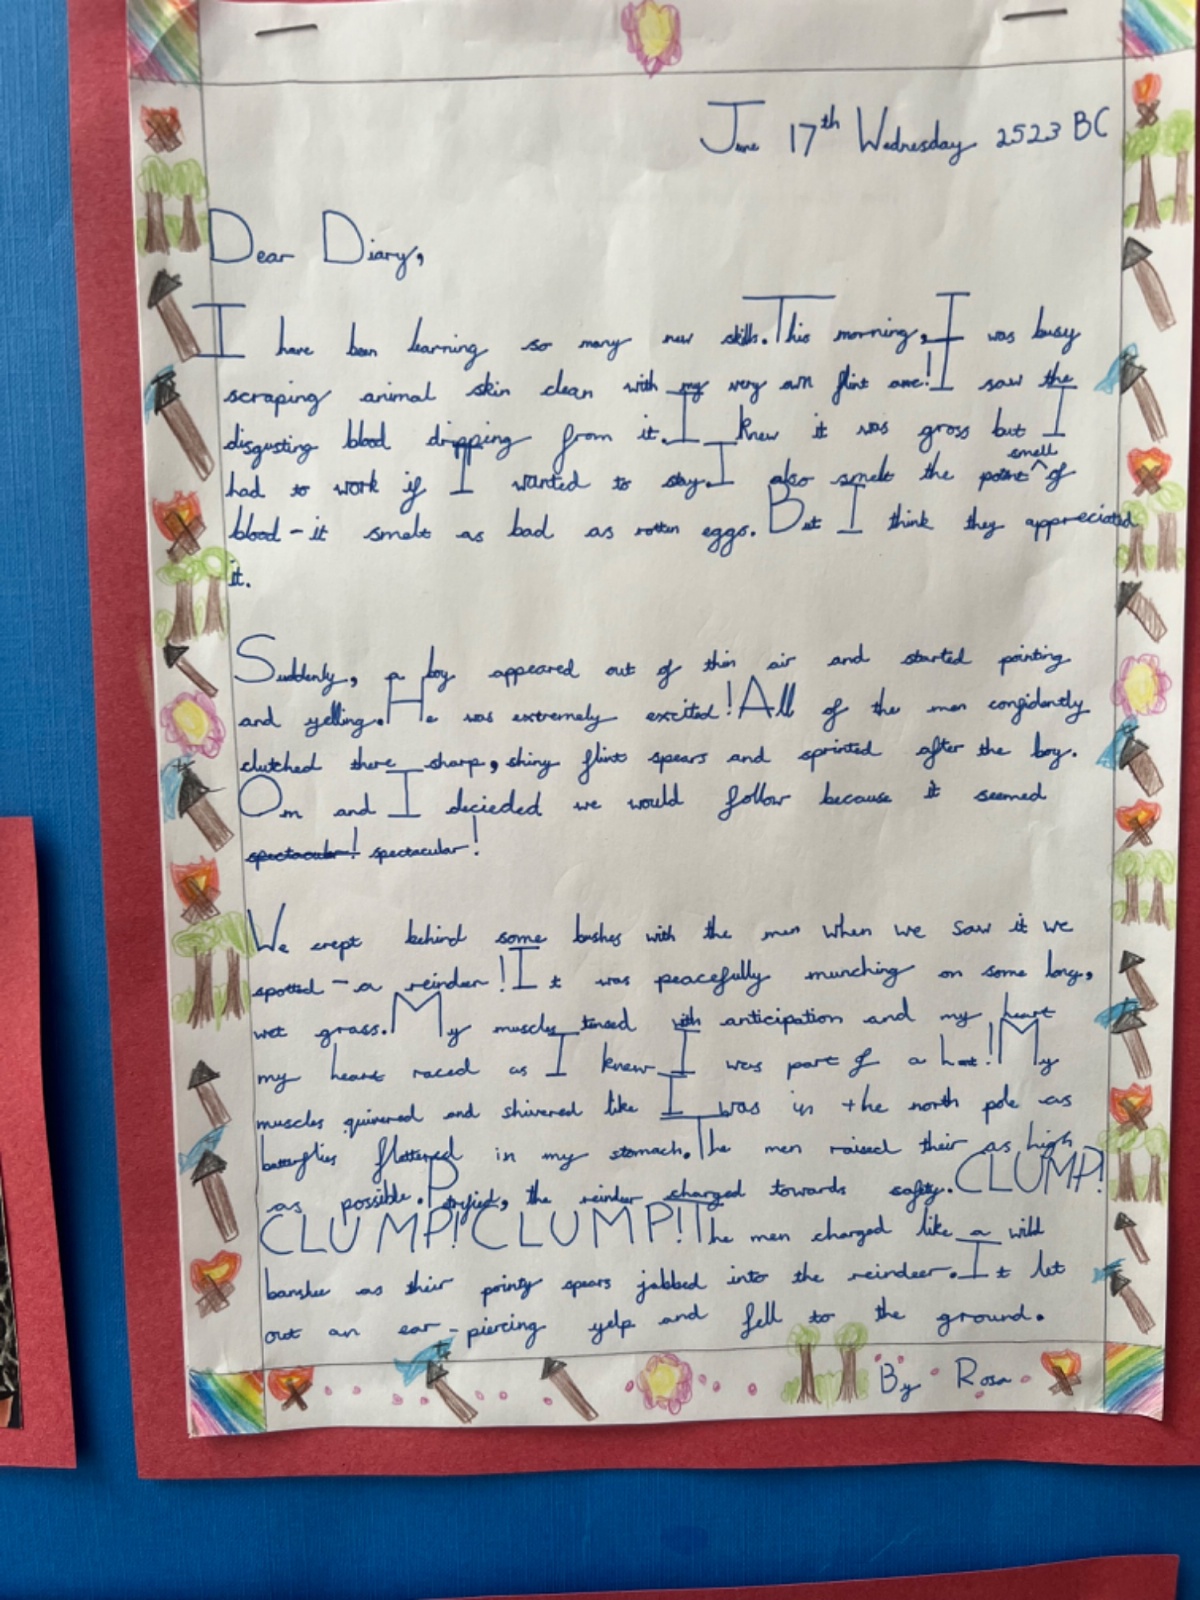 June 17th Wednesday 2523 BC
Dear Diary,
I have been learning so many new skills. This morning, I was busy
scraping animal skin clean with my very own flint axe! I saw the
disgusting blood dripping from it. I knew it was gross but I
had to work if I wanted to stay. I also smelt the potent smell of
blood - it smelt as bad as rotten eggs. But I think they appreciated
it.
Suddenly, a boy appeared out of thin air and started pointing
and yelling. He was extremely excited! All of the men confidently
clutched there sharp, shiny flint spears and sprinted after the boy.
Om and I decieded we would follow because it seemed
spectacular! spectacular!
We crept behind some bushes with the men when we saw it we
spotted - a reindeer! It was peacefully munching on some long,
wet grass. My muscles tensed with anticipation and my heart
my heart raced as I knew I was part of a hunt! My
muscles quivered and shivered like I was in the north pole as
butterflies fluttered in my stomach. The men raised their as high
as possible. Petrified, the reindeer charged towards safety. CLUMP!
CLUMP! CLUMP! The men charged like a wild
banshee as their pointy spears jabbed into the reindeer. It let
out an ear-piercing yelp and fell to the ground.
By Rosa